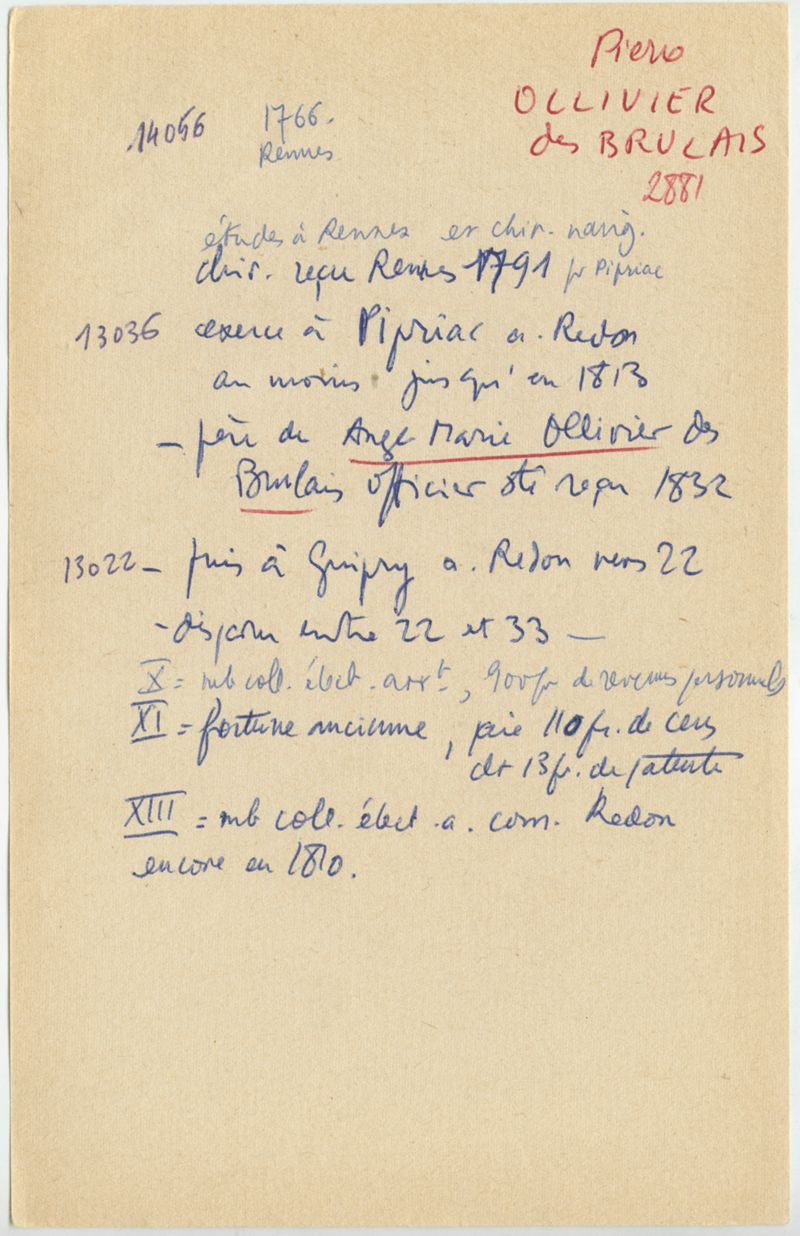 Pierre
OLLIVIER
des BRULAIS
2881
14056 1766.
Rennes
études à Rennes er chir. navig.
chir. reçu Rennes 1791 pr Pipriac
13036 exerce à Pipriac a. Redon
au moins jusqu'en 1813
– père de Ange Marie Ollivier des
Brulais officier sté reçu 1832
13022 – puis à Guipry a. Redon vers 22
- disparu entre 22 et 33 –
X = mb coll. élect. arrt, 900 fr de revenus personnels
XI = fortune ancienne, paie 110 fr. de cens
et 13 fr. de patente
XIII = mb coll. élect. a. com. Redon
encore en 1810.